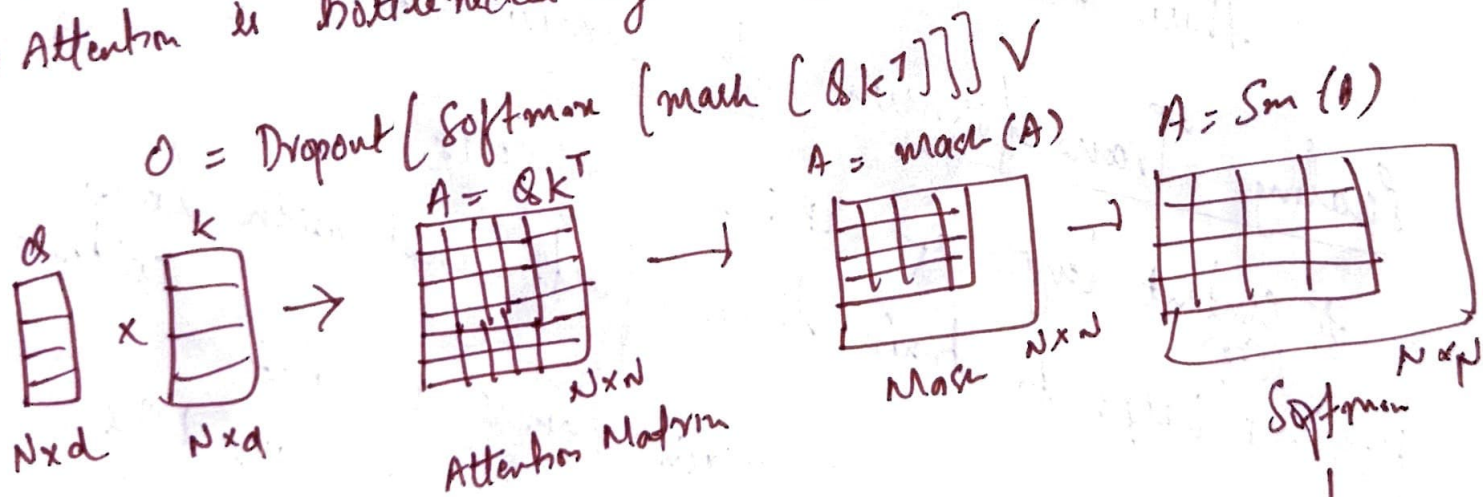 Attention is
O = Dropout ( Softmax [ mask [ QKᵀ ] ] ] V
A = QKᵀ
A = mask (A)
A = Sm (A)
Q
K
x
→
→
→
N x d
N x d
N x N
Attention Matrix
N x N
Mask
N x N
Softmax